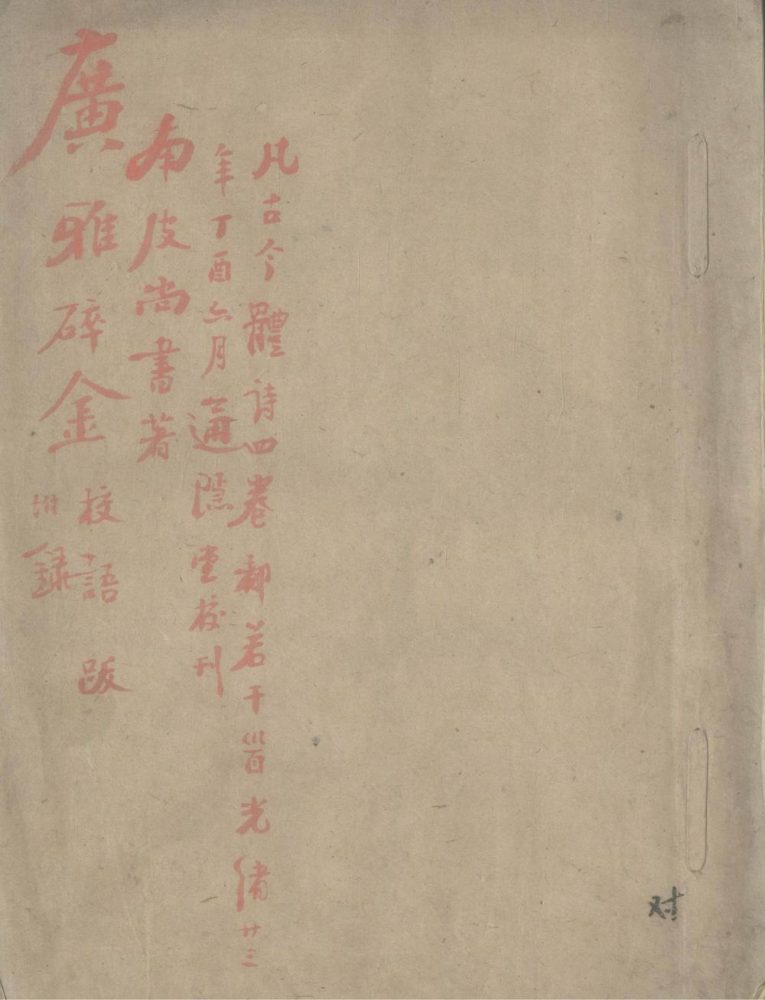 凡古今體詩四卷都若干首光緒廿三
年丁酉六月通隱堂校刊
南皮尚書著
廣雅碎金
校語跋
附錄
对